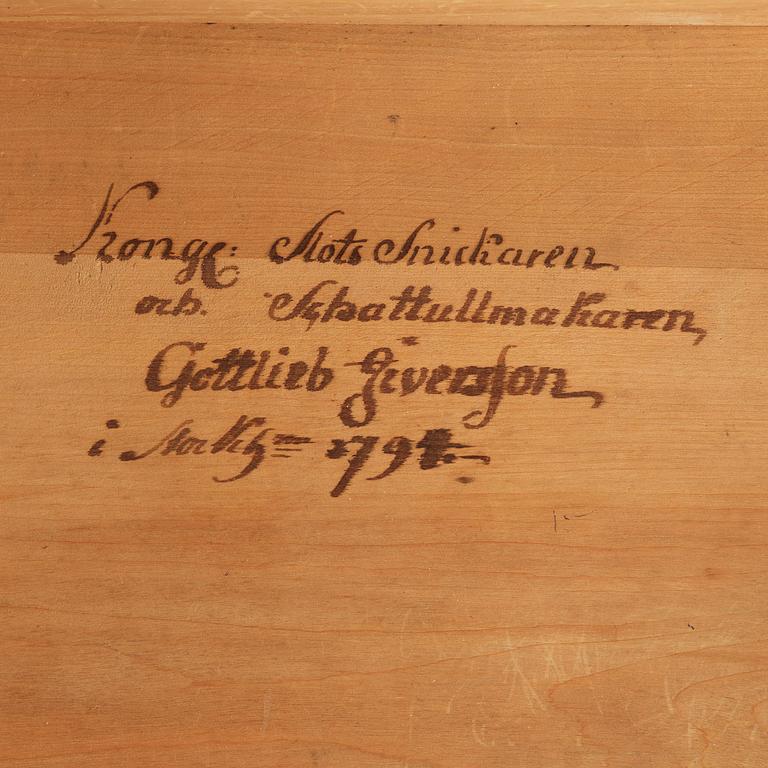 Kongl: Slots Snickaren
och. Schattullmakaren,
Gottlieb Iversson
i Stockhm 1794.